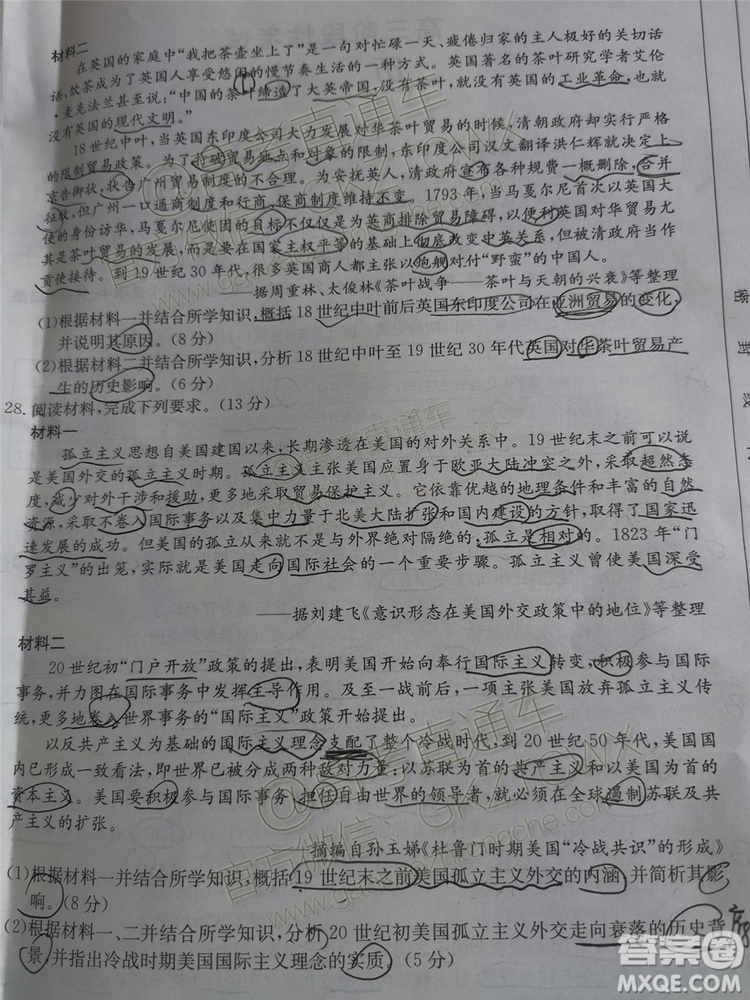 材料二
在英国的家庭中“我把茶壶坐上了”是一句对忙碌一天、疲倦归家的主人极好的关切话
语,饮茶成为了英国人享受悠闲的慢节奏生活的一种方式。英国著名的茶叶研究学者艾伦
·麦克法兰甚至说:“中国的茶叶缔造了大英帝国,没有茶叶,就没有英国的工业革命,也就
没有英国的现代文明。”
18世纪中叶,当英国东印度公司大力发展对华茶叶贸易的时候,清朝政府却实行严格
的限制贸易政策。为了打破贸易地点和对象的限制,东印度公司汉文翻译洪仁辉就决定上
京告御状,状告广州贸易制度的不合理。为安抚英人,清政府宣布各种规费一概删除,合并
征取,但广州一口通商制度和行商、保商制度维持不变。1793年,当马戛尔尼首次以英国大
使的身份访华,马戛尔尼使团的目标不仅仅是为英商排除贸易障碍,以便利英国对华贸易尤
其是茶叶贸易的发展,而是要在国家主权平等的基础上彻底改变中英关系,但被清政府当作
贡使接待。到19世纪30年代,很多英国商人都主张以炮舰对付“野蛮”的中国人。
——据周重林、太俊林《茶叶战争——茶叶与天朝的兴衰》等整理
(1)根据材料一并结合所学知识,概括18世纪中叶前后英国东印度公司在亚洲贸易的变化,
并说明其原因。(8分)
(2)根据材料二并结合所学知识,分析18世纪中叶至19世纪30年代英国对华茶叶贸易产
生的历史影响。(6分)
28.阅读材料,完成下列要求。(13分)
材料一
孤立主义思想自美国建国以来,长期渗透在美国的对外关系中。19世纪末之前可以说
是美国外交的孤立主义时期。孤立主义主张美国应置身于欧亚大陆冲突之外,采取超然态
度,减少对外干涉和援助,更多地采取贸易保护主义。它依靠优越的地理条件和丰富的自然
资源,采取不卷入国际事务以及集中力量于北美大陆扩张和国内建设的方针,取得了国家迅
速发展的成功。但美国的孤立从来就不是与外界绝对隔绝的,孤立是相对的。1823年“门
罗主义”的出笼,实际就是美国走向国际社会的一个重要步骤。孤立主义曾使美国深受
其益。
——据刘建飞《意识形态在美国外交政策中的地位》等整理
材料二
20世纪初“门户开放”政策的提出,表明美国开始向奉行国际主义转变,积极参与国际
事务,并力图在国际事务中发挥主导作用。及至一战前后,一项主张美国放弃孤立主义、
更多地卷入世界事务的“国际主义”政策开始提出。
以反共产主义为基础的国际主义理念支配了整个冷战时代,到20世纪50年代,美国国
内已形成一致看法,即世界已被分成两种敌对力量:以苏联为首的共产主义和以美国为首的
资本主义。美国要积极参与国际事务、担任自由世界的领导者,就必须在全球遏制苏联及共
产主义的扩张。
——摘编自孙玉娣《杜鲁门时期美国“冷战共识”的形成》
(1)根据材料一并结合所学知识,概括19世纪末之前美国孤立主义外交的内涵,并简析其影
响。(8分)
(2)根据材料一、二并结合所学知识,分析20世纪初美国孤立主义外交走向衰落的历史背
景,并指出冷战时期美国国际主义理念的实质。(5分)
密
封
线
答案圈
MXQE.COM